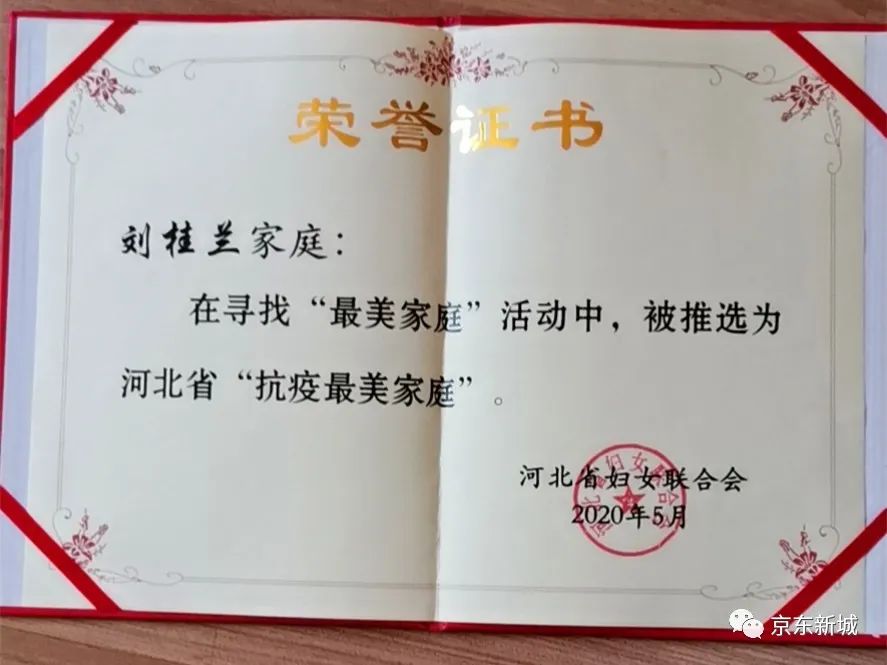 荣誉证书
刘桂兰家庭：
在寻找“最美家庭”活动中，被推选为
河北省“抗疫最美家庭”。
河北省妇女联合会
2020年5月
河北省妇女联合会
京东新城